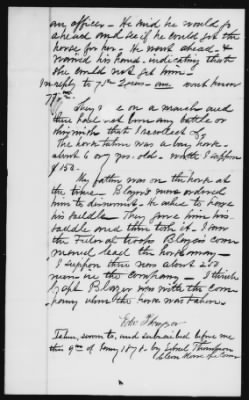 an officer - He said he would go
ahead and see if he could get the
horse for her. He went ahead - &
waived his hand, indicating that
she could not get him -
In reply to 7th Quer - ans
They were on a march and
there had not been any battle or
skirmishes that I recollect of
The horse taken was a bay horse -
about 6 or 7 yrs. old - worth I suppose
$150.
My father was on the horse at
the time - Blazer's men ordered
him to dismount - He asked to have
his saddle They gave him his
saddle and then took it. I saw
the Federal troops Blazer's com-
mand lead the horse away -
I suppose there was about
men in the company - I think
Capt Blazer was with the com-
pany when the horse was taken.
Thompson
Taken, sworn to, and subscribed before me
this 9th of 1878 - by Thompson